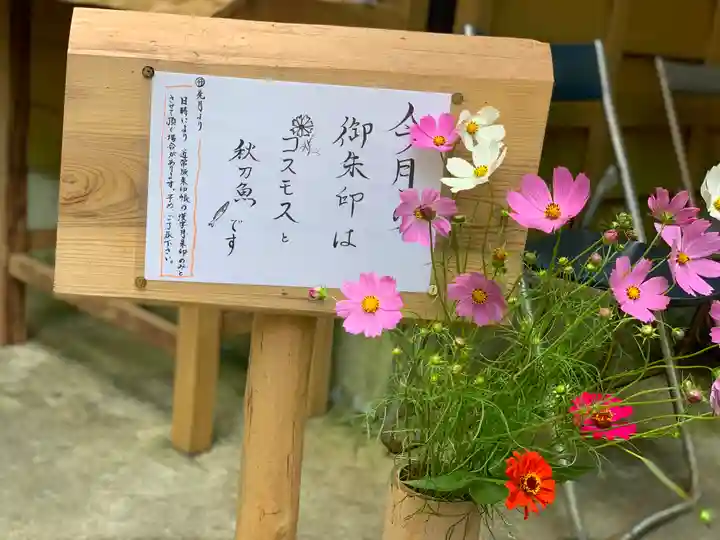 今月の
御朱印は
コスモスと
秋刀魚です
先月より
日時により
御朱印のみと
させて頂く場合があります。予めご了承下さい。